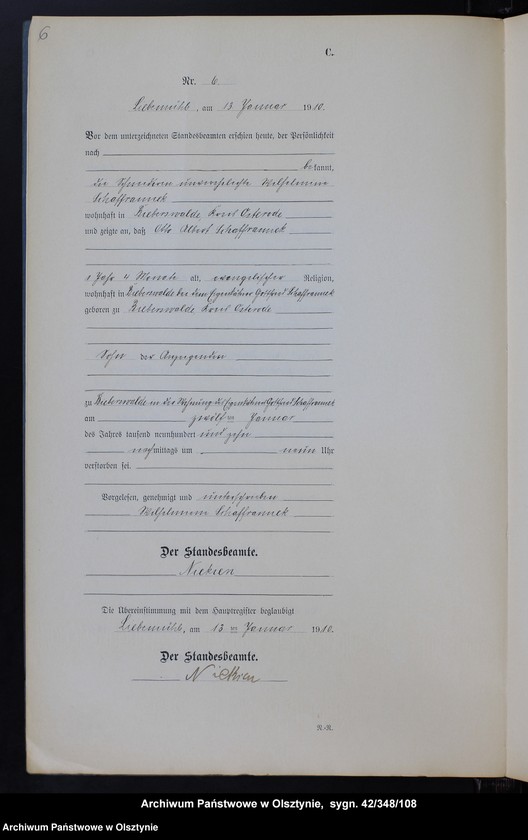 6
C.
Nr. 6
Liebemühl, am 13 Januar 1910.
Vor dem unterzeichneten Standesbeamten erschien heute, der Persönlichkeit
nach
bekannt,
die Schneiderin unverehelichte Wilhelmine
Schaffrannek
wohnhaft in Bieberswalde Kreis Osterode
und zeigte an, daß Otto Albert Schaffrannek
1 Jahr 4 Monate alt, evangelischer Religion,
wohnhaft in Bieberswalde bei dem Eigentümer Gottfried Schaffrannek
geboren zu Bieberswalde Kreis Osterode
Sohn der Anzeigenden
zu Bieberswalde in der Wohnung des Eigentümers Gottfried Schaffrannek
am zwölften Januar
des Jahres tausend neunhundert und zehn
nachmittags um neun Uhr
verstorben sei.
Vorgelesen, genehmigt und unterschrieben
Wilhelmine Schaffrannek
Der Standesbeamte.
Die Übereinstimmung mit dem Hauptregister beglaubigt
Liebemühl, am 13 ten Januar 1910.
Der Standesbeamte.
N.-R.
Archiwum Państwowe w Olsztynie, sygn. 42/348/108
Archiwum Państwowe w Olsztynie